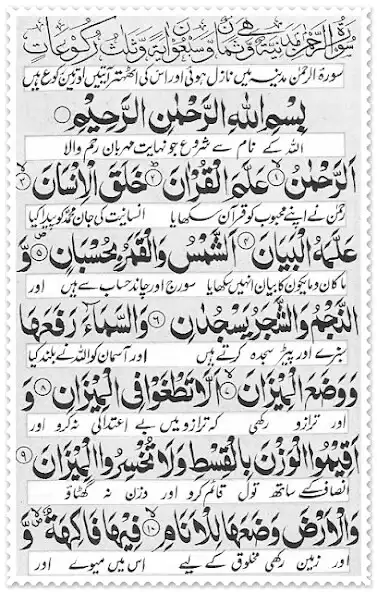 سُوۡرَةُ الرَّحۡمٰنِ مَدَنِيَّةٌ وَّهِيَ ثَمَانٌ وَّسَبۡعُوۡنَ اٰيَةً وَّثَلٰثُ رُكُوۡعَاتٍ
سورۃ الرحمٰن مدینہ میں نازل ہوئی اور اس کی اٹھتر آیتیں اور تین رکوع ہیں
بِسۡمِ اللّٰهِ الرَّحۡمٰنِ الرَّحِيۡمِ
اللہ کے نام سے شروع جو نہایت مہربان رحم والا
اَلرَّحۡمٰنُ ۙ‏ ﴿۱﴾ عَلَّمَ الۡقُرۡاٰنَ ؕ‏ ﴿۲﴾ خَلَقَ الۡاِنۡسَانَ ۙ‏ ﴿۳﴾
رحمٰن نے اپنے محبوب کو قرآن سکھایا انسانیت کی جان محمد کو پیدا کیا
عَلَّمَهُ الۡبَيَانَ ﴿۴﴾ اَلشَّمۡسُ وَالۡقَمَرُ بِحُسۡبَانٍ ﴿۵﴾ وَّ
ماکان ومایکون کا بیان انہیں سکھایا سورج اور چاند حساب سے ہیں اور
النَّجۡمُ وَالشَّجَرُ يَسۡجُدٰنِ ﴿۶﴾ وَالسَّمَآءَ رَفَعَهَا
سبزے اور پیڑ سجدہ کرتے ہیں اور آسمان کو اللہ نے بلند کیا
وَوَضَعَ الۡمِيۡزَانَ ۙ‏ ﴿۷﴾ اَلَّا تَطۡغَوۡا فِى الۡمِيۡزَانِ ﴿۸﴾ وَ
اور ترازو رکھی کہ ترازو میں بے اعتدالی نہ کرو اور
اَقِيۡمُوا الۡوَزۡنَ بِالۡقِسۡطِ وَلَا تُخۡسِرُوا الۡمِيۡزَانَ ﴿۹﴾
انصاف کے ساتھ تول قائم کرو اور وزن نہ گھٹاؤ
وَالۡاَرۡضَ وَضَعَهَا لِلۡاَنَامِ ۙ‏ ﴿۱۰﴾ فِيۡهَا فَاكِهَةٌ وَّ
اور زمین رکھی مخلوق کے لیے اس میں میوے اور